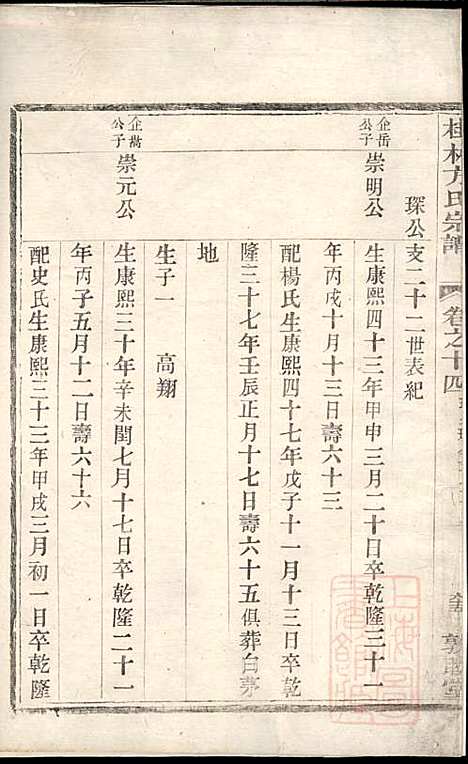 桂林方氏宗譜 卷之十四
琛公支二十二世表紀
企岳公子 崇明公
生康熙四十三年甲申三月二十日卒乾隆三十一
年丙戌十月十三日壽六十三
配楊氏生康熙四十七年戊子十一月十三日卒乾
隆三十七年壬辰正月十七日壽六十五俱葬白茅
地
生子一 高翔
企嵩公子 崇元公
生康熙三十年辛未閏七月十七日卒乾隆二十一
年丙子五月十二日壽六十六
配史氏生康熙三十三年甲戌三月初一日卒乾隆